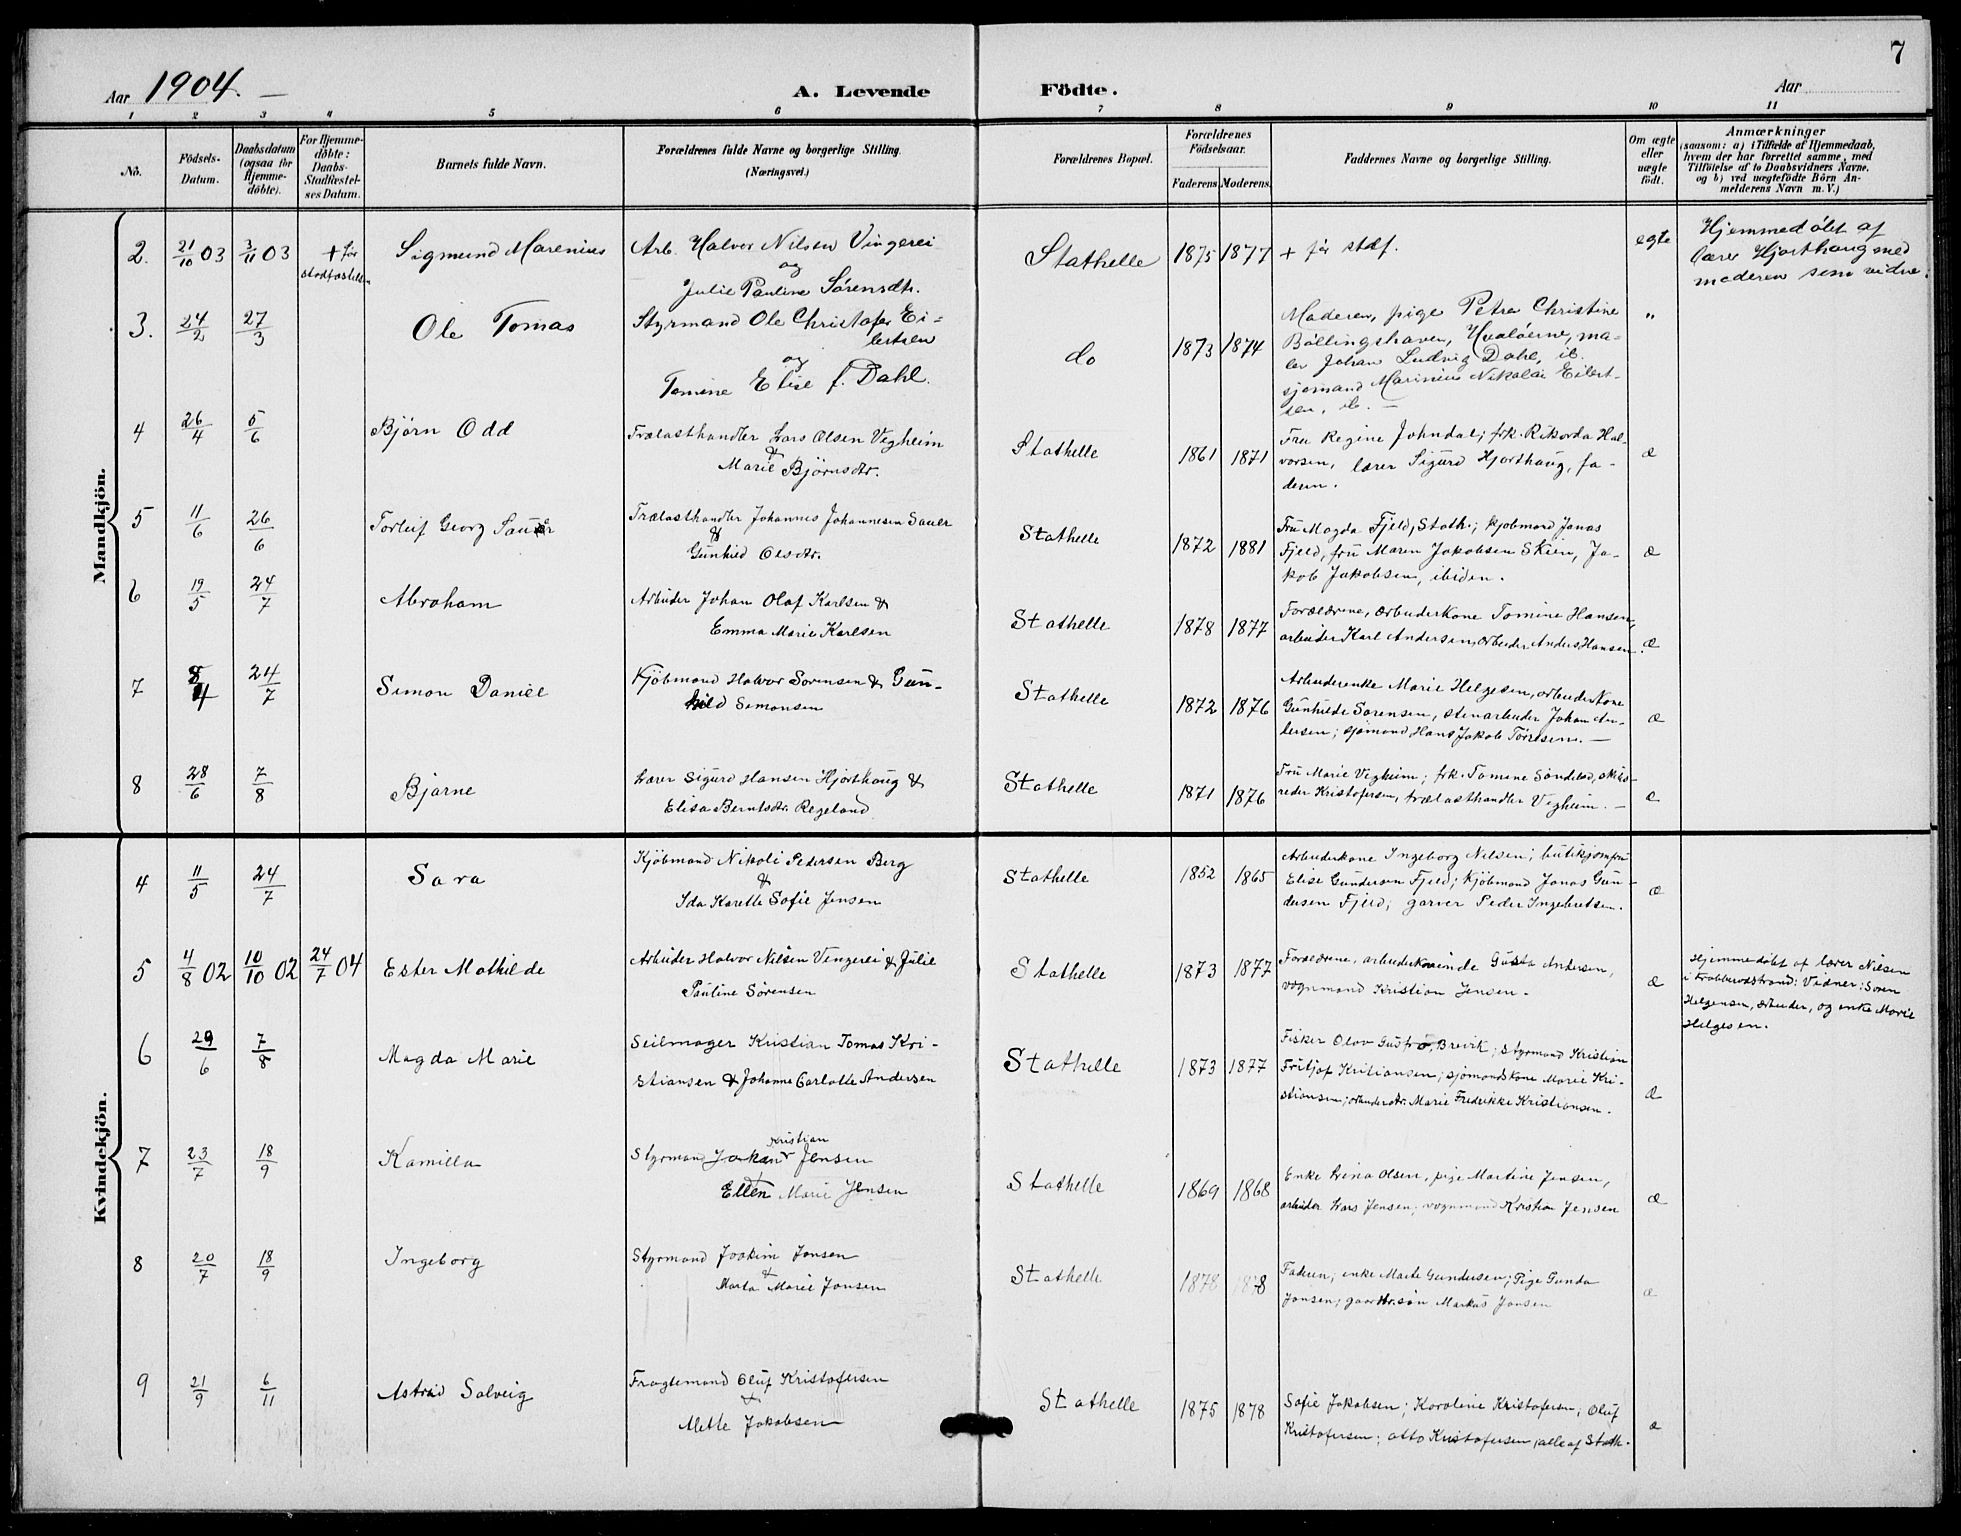 7
Aar 1904. A. Levende Födte. Aar
1 2 3 4 5 6 7 8 9 10 11
No.
Födsels-
Datum.
Daabsdatum
(ogsaa for
Hjemme-
döbte).
For Hjemme-
döbte:
Daabs-
Stadfæstel-
ses Datum.
Barnets fulde Navn.
Forældrenes fulde Navne og borgerlige Stilling.
(Næringsvei.)
Forældrenes Bopæl.
Forældrenes
Födselsaar.
Faderens. Moderens.
Faddernes Navne og borgerlige Stilling.
Om ægte
eller
uægte
født.
Anmærkninger
(saasom: a) i Tilfælde af Hjemmedaab,
hvem der har forrettet samme, med
Tilföielse af to Daabsvidners Navne,
og b) ved uægtefödte Börn An-
melderens Navn m. V.)
Mandkjön.
2. 21/10 03 3/11 03 + før
stadfæstelsen
Sigmund Marenius
Arb. Halvor Nilsen Vingerei
og
Julie Pauline Sörensdtr.
Stathelle 1875 1877 + før staf. egte
Hjemmedöbt af
lærer Hjorthaug med
moderen som vidne.
3. 24/2 27/3 Ole Tomas
Styrmand Ole Christofer Ei-
lertsen
og
Tomine Elise f. Dahl.
do 1873 1874
Moderen, pige Petra Christine
Böllingshaven, Hvalöerne, ma-
ler Johan Ludvig Dahl, ib.
sjömand Marinius Nikolai Eilert-
sen, ib. —
"
4 26/4 5/6 Björn Odd
Trælasthandler Lars Olsen Vegheim
&
Marie Björnsdtr.
Stathelle 1861 1871
Fru Regine Johndal; frk. Rikorda Hal-
vorsen, lærer Sigurd Hjorthaug, fa-
deren.
æ
5 11/6 26/6 Torleif Georg Sauer
Trælasthandler Johannes Johannesen Sauer
&
Gunhild Olsdtr.
Stathelle 1872 1881
Fru Magda Fjeld, Stath.; kjöbmand Jonas
Fjeld, fru Maren Jakobsen Skien, Ja-
kob Jakobsen, ibiden.
æ
6 19/5 24/7 Abraham
Arbeider Johan Olaf Karlsen &
Emma Marie Karlsen
Stathelle 1878 1877
Forældrene, arbeiderkone Tomine Hansen,
arbeider Karl Andersen, arbeider Anders Hansen.
æ
7 8/4 24/7 Simon Daniel
Kjöbmand Halvor Sorensen & Gun-
hild Simonsen
Stathelle 1872 1876
Arbeiderenke Marie Helgesen, arbeiderkone
Gunhilde Sorensen, stenarbeider Johan An-
dersen; sjömand Hans Jakob Torresen. —
æ
8 28/6 7/8 Bjarne
Lærer Sigurd Hansen Hjorthaug &
Elisa Berntsdtr. Regeland
Stathelle 1871 1876
Fru Marie Vegheim; frk. Tomine Söndelod, skibs-
reder Kristofersen, trælasthandler Vegheim. —
æ
Kvindekjön.
4 11/5 24/7 Sara
Kjöbmand Nikoli Pedersen Berg
&
Ida Karette Sofie Jensen
Stathelle 1852 1865
Arbeiderkone Ingeborg Nilsen; butikjomfru
Elise Gundersen Fjeld; kjöbmand Jonas Gun-
dersen Fjeld; garver Peder Ingebretsen.
æ
5 4/8 02 10/10 02 24/7 04 Ester Mathilde
Arbeider Halvor Nilsen Vingerei & Julie
Pauline Sörensen
Stathelle 1873 1877
Forældrene, arbeiderkvinde Gusta Andersen,
vognmand Kristian Jensen.
æ
Hjemmedöbt af lærer Nilsen
i Krabberödstrand: Vidner: Soren
Helgensen, arbeider, og enke Marie
Helgesen.
6 29/6 7/8 Magda Marie
Seilmager Kristian Tomas Kri-
stiansen & Johanne Carlotte Andersen
Stathelle 1873 1877
Fisker Olav Brevik; styrmand Kristian
Fritjof Kritiansen; sjömandskone Marie Kri-
stiansen; arbeiderdtr. Marie Fredrikke Kristiansen.
æ
7 23/7 18/9 Kamilla
Kristian
Styrmand Johan Jensen
&
Ellen Marie Jensen
Stathelle 1869 1868
Enke Lina Olsen, pige Martine Jensen,
arbeider Lars Jensen; vognmand Kristian Jensen
æ
8 20/7 18/9 Ingeborg
Styrmand Joakim Jansen
&
Marta Marie Jansen
Stathelle 1878 1878
Faderen; enke Marte Gundersen; Pige Gunda
Jansen; gaardbr.sön Markus Jansen
æ
9 21/9 6/11 Astrid Solveig
Fragtemand Oluf Kristofersen
&
Mette Jakobsen
Stathelle 1875 1878
Sofie Jakobsen; Karoline Kristofersen; Oluf
Kristofersen; Otto Kristofersen, alle af Stath.
æ